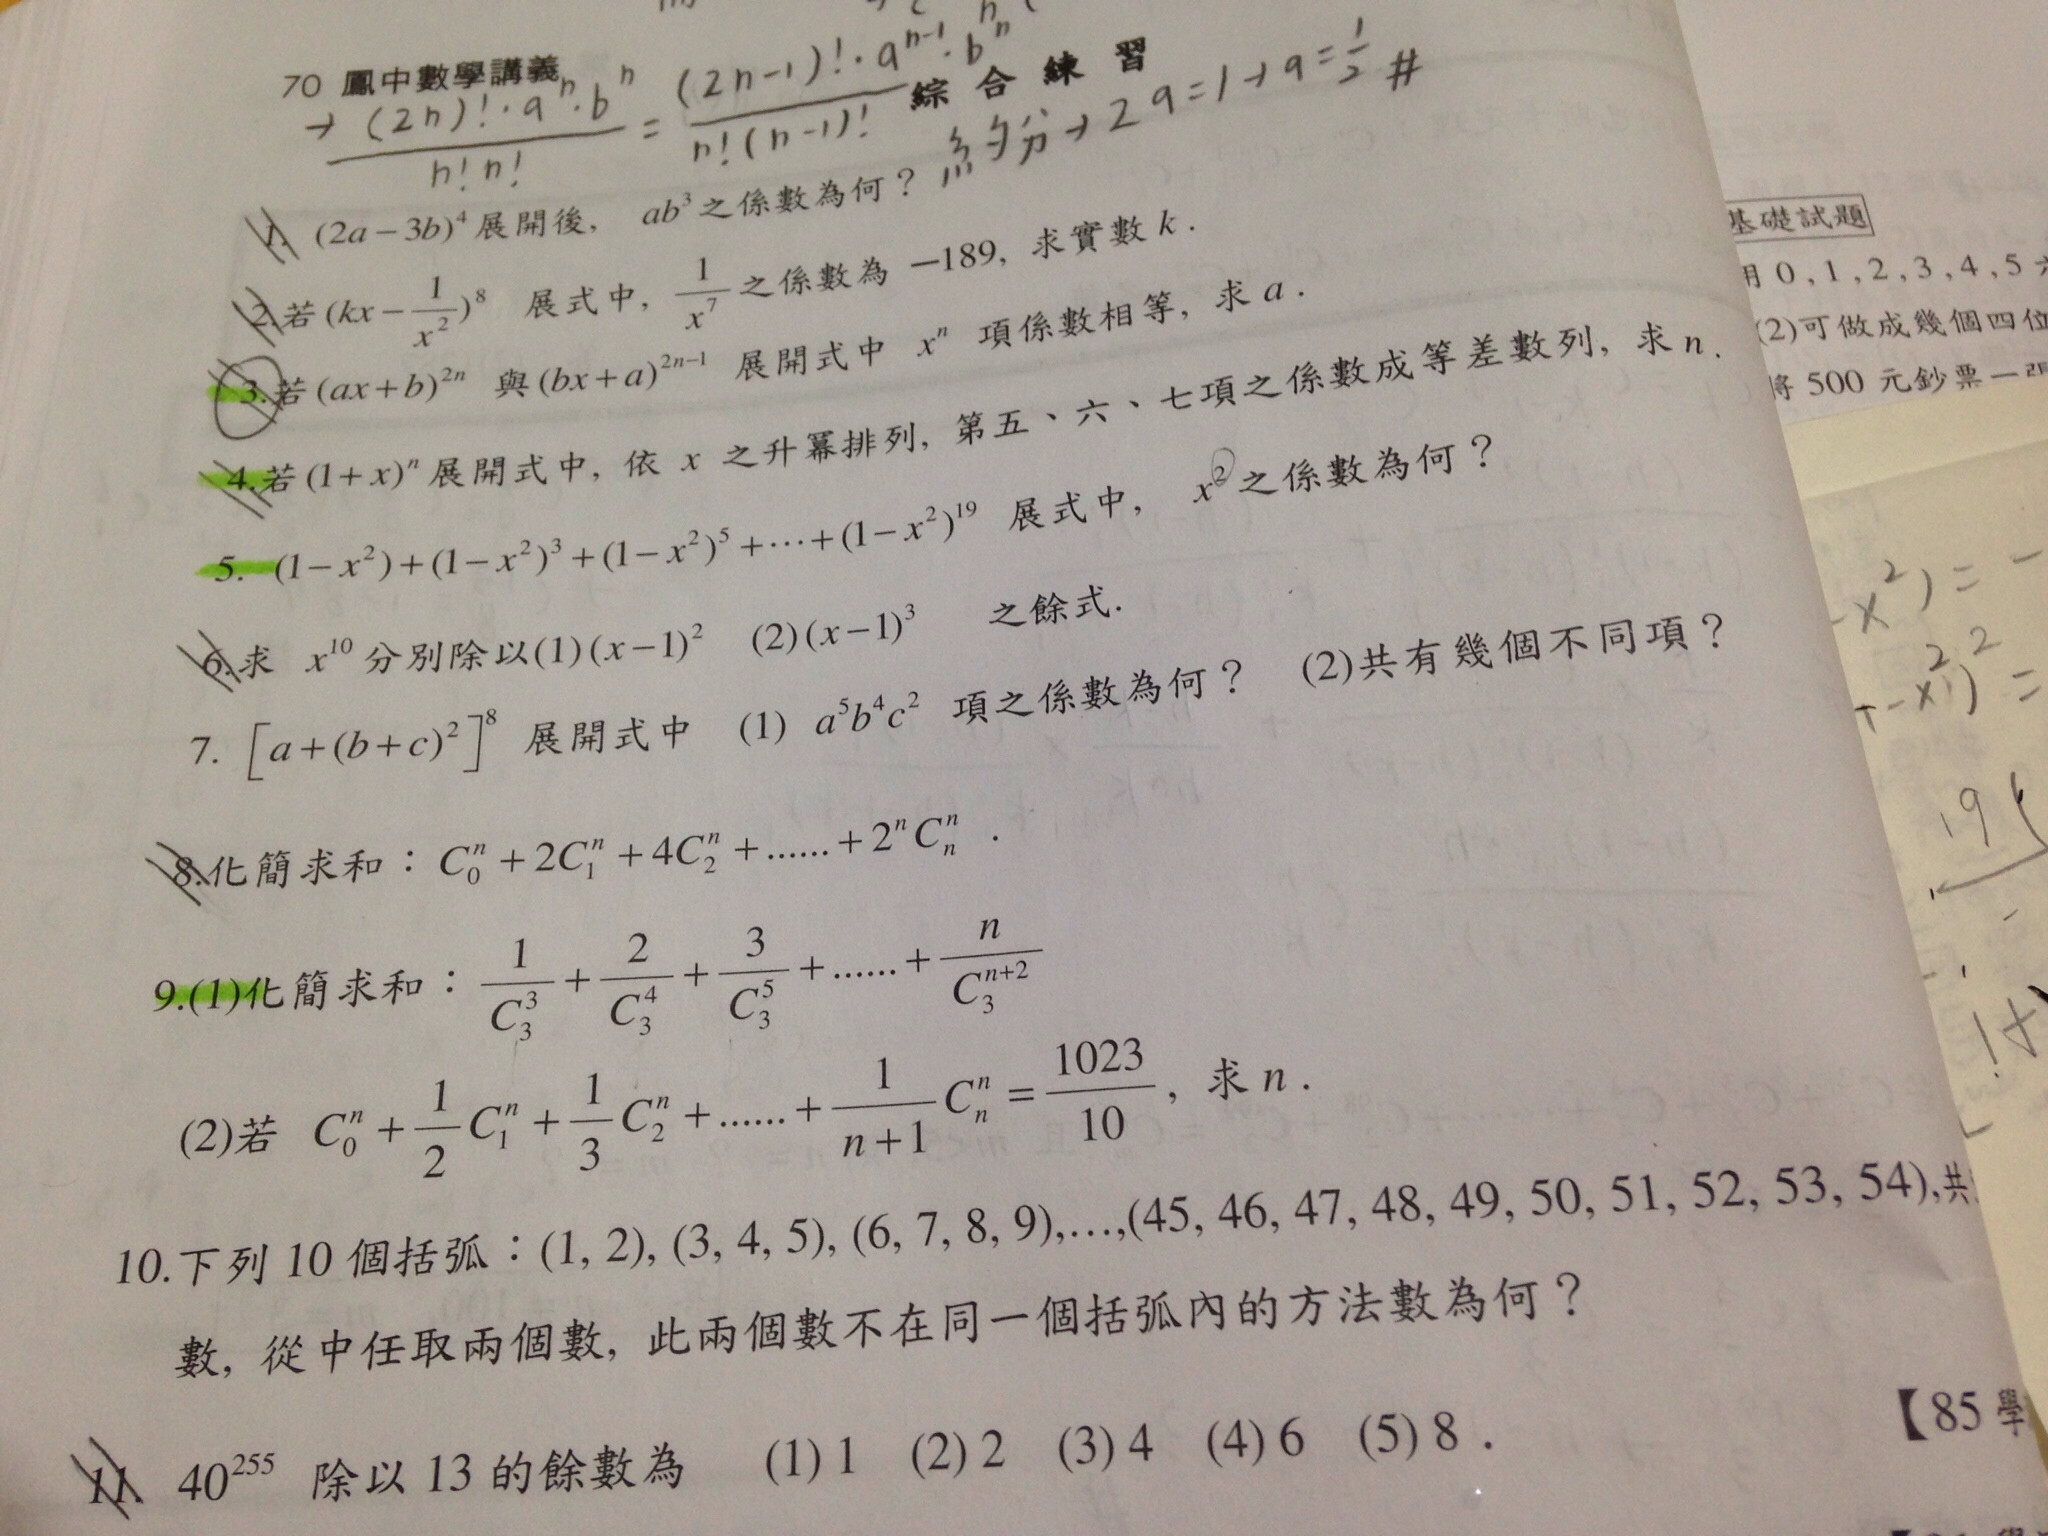 70 鳳中數學講義
→ (2n)!·aⁿ·bⁿ / n!n! = (2n-1)!·aⁿ⁻¹·bⁿ / n!(n-1)!
綜合練習
約分→2a=1→a=1/2 #
1. (2a-3b)⁴展開後, ab³之係數為何?
2.若(kx-1/x²)⁸ 展式中, 1/x⁷之係數為-189, 求實數k.
3.若(ax+b)²ⁿ 與(bx+a)²ⁿ⁻¹ 展開式中 xⁿ 項係數相等, 求a.
4.若(1+x)ⁿ展開式中, 依 x 之升冪排列, 第五、六、七項之係數成等差數列, 求n.
5. (1-x²)+(1-x²)³+(1-x²)⁵+⋯+(1-x²)¹⁹ 展式中, x²之係數為何?
6.求 x¹⁰分別除以(1)(x-1)² (2)(x-1)³ 之餘式.
7. [a+(b+c)²]⁸ 展開式中 (1) a⁵b⁴c² 項之係數為何? (2)共有幾個不同項?
8.化簡求和:C₀ⁿ+2C₁ⁿ+4C₂ⁿ+......+2ⁿCₙⁿ .
9.(1)化簡求和:1/C₃³+2/C₃⁴+3/C₃⁵+......+n/C₃ⁿ⁺²
(2)若 C₀ⁿ+1/2C₁ⁿ+1/3C₂ⁿ+......+1/(n+1)Cₙⁿ=1023/10, 求n.
10.下列10個括弧:(1, 2), (3, 4, 5), (6, 7, 8, 9),…,(45, 46, 47, 48, 49, 50, 51, 52, 53, 54),共
數, 從中任取兩個數, 此兩個數不在同一個括弧內的方法數為何?
【85學
11. 40²⁵⁵ 除以13的餘數為 (1)1 (2)2 (3)4 (4)6 (5)8.
基礎試題
用0,1,2,3,4,5
(2)可做成幾個四位
將500元鈔票一張
-x²)=-
-x²)²=